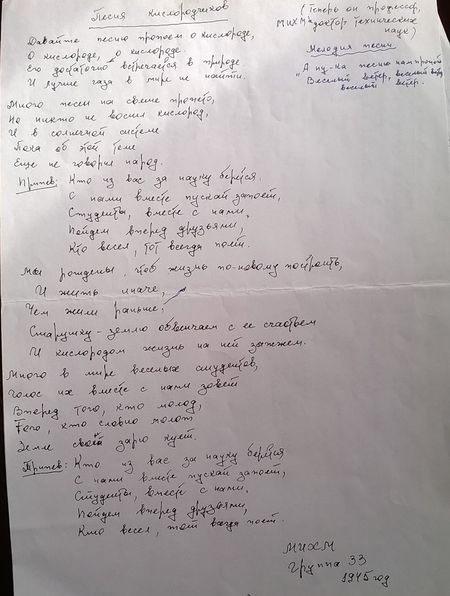 Песня кислородчиков
(Теперь он профессор,
МИХМ доктор технических
наук)
Мелодия песни
"А ну-ка песню нам пропой
Веселый ветер, веселый ветер,
веселый ветер.
Давайте песню пропоем о кислороде,
О кислороде, о кислороде.
Его достаточно встречается в природе
И лучше газа в мире не найти.
Много песен на свете пропето,
Но никто не воспел кислород,
И в солнечной системе
Пока об этой теме
Еще не говорил народ.
Припев: Кто из вас за науку берется
С нами вместе пускай запоет,
Студенты, вместе с нами,
Пойдем вперед друзьями,
Кто весел, тот всегда поет.
Мы рождены, чтоб жизнь по-новому построить,
И жить иначе,
Чем жили раньше.
Старушку-землю обвенчаем с ее счастьем
И кислородом жизнь на ней зажжем.
Много в мире веселых студентов,
Голос их вместе с нами зовет
Вперед того, кто молод,
Того, кто словно молот
Земле свой зарю кует.
Припев: Кто из вас за науку берется
С нами вместе пускай запоет,
Студенты, вместе с нами,
Пойдем вперед друзьями,
Кто весел, тот всегда поет.
МИХМ
Группа 33
1945 год